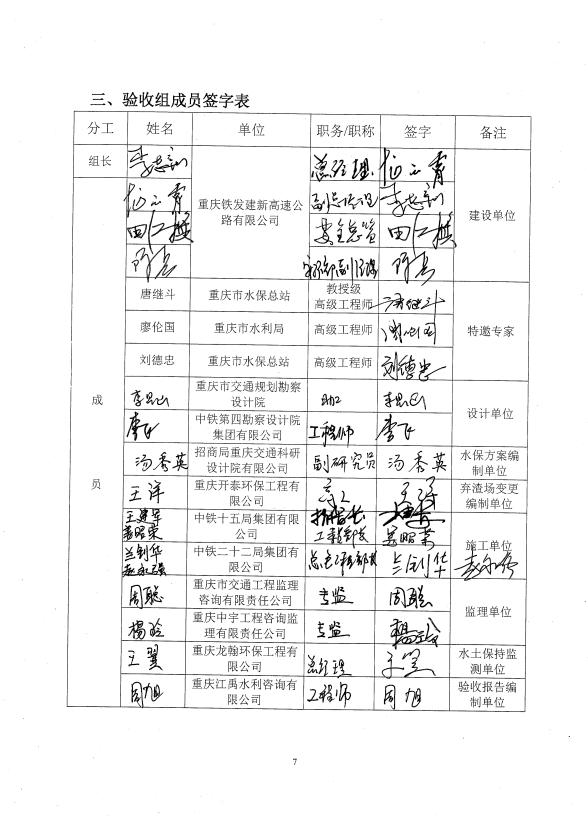 三、验收组成员签字表
分工 姓名 单位 职务/职称 签字 备注
组长 李志训 总经理
重庆铁发建新高速公路有限公司
建设单位
李志训
成员
唐继斗 重庆市水保总站 教授级高级工程师 唐继斗
特邀专家
廖伦国 重庆市水利局 高级工程师
刘德忠 重庆市水保总站 高级工程师 刘德忠
李思山 重庆市交通规划勘察设计院 助工 李思山
设计单位
李飞 中铁第四勘察设计院集团有限公司 工程师 李飞
汤香英 招商局重庆交通科研设计院有限公司 副研究员 汤香英 水保方案编制单位
王洋 重庆开泰环保工程有限公司 王洋 弃渣场变更编制单位
中铁十五局集团有限公司 工程部长
施工单位
兰钊华 中铁二十二局集团有限公司 兰钊华
周聪 重庆市交通工程监理咨询有限责任公司 专监 周聪
监理单位
杨玲 重庆中宇工程咨询监理有限责任公司 专监 杨玲
王翼 重庆龙翰环保工程有限公司 总经理 王翼 水土保持监测单位
周旭 重庆江禹水利咨询有限公司 工程师 周旭 验收报告编制单位
7